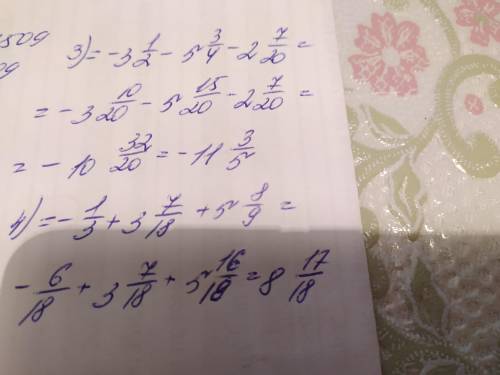 509
3) = -3 1/2 - 5 3/4 - 2 7/20 =
= -3 10/20 - 5 15/20 - 2 7/20 =
= -10 32/20 = -11 3/5
4) = -1/3 + 3 7/18 + 5 8/9 =
-6/18 + 3 7/18 + 5 16/18 = 8 17/18